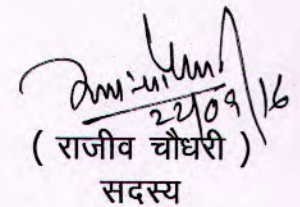 22/09/16
( राजीव चौधरी )
सदस्य